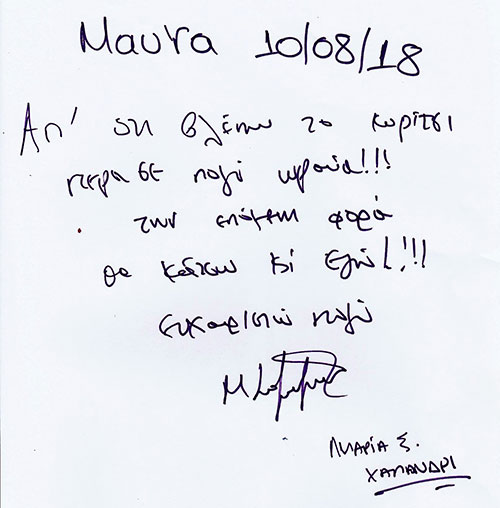 Maura 10/08/18
Απ' ότι βλέπω το κορίτσι
πέρασε πολύ ωραία!!!
την επόμενη φορά
θα κάτσω κι εγώ!!!!
Ευχαριστώ πολύ
Μαρία Σ.
ΧΑΛΑΝΔΡΙ